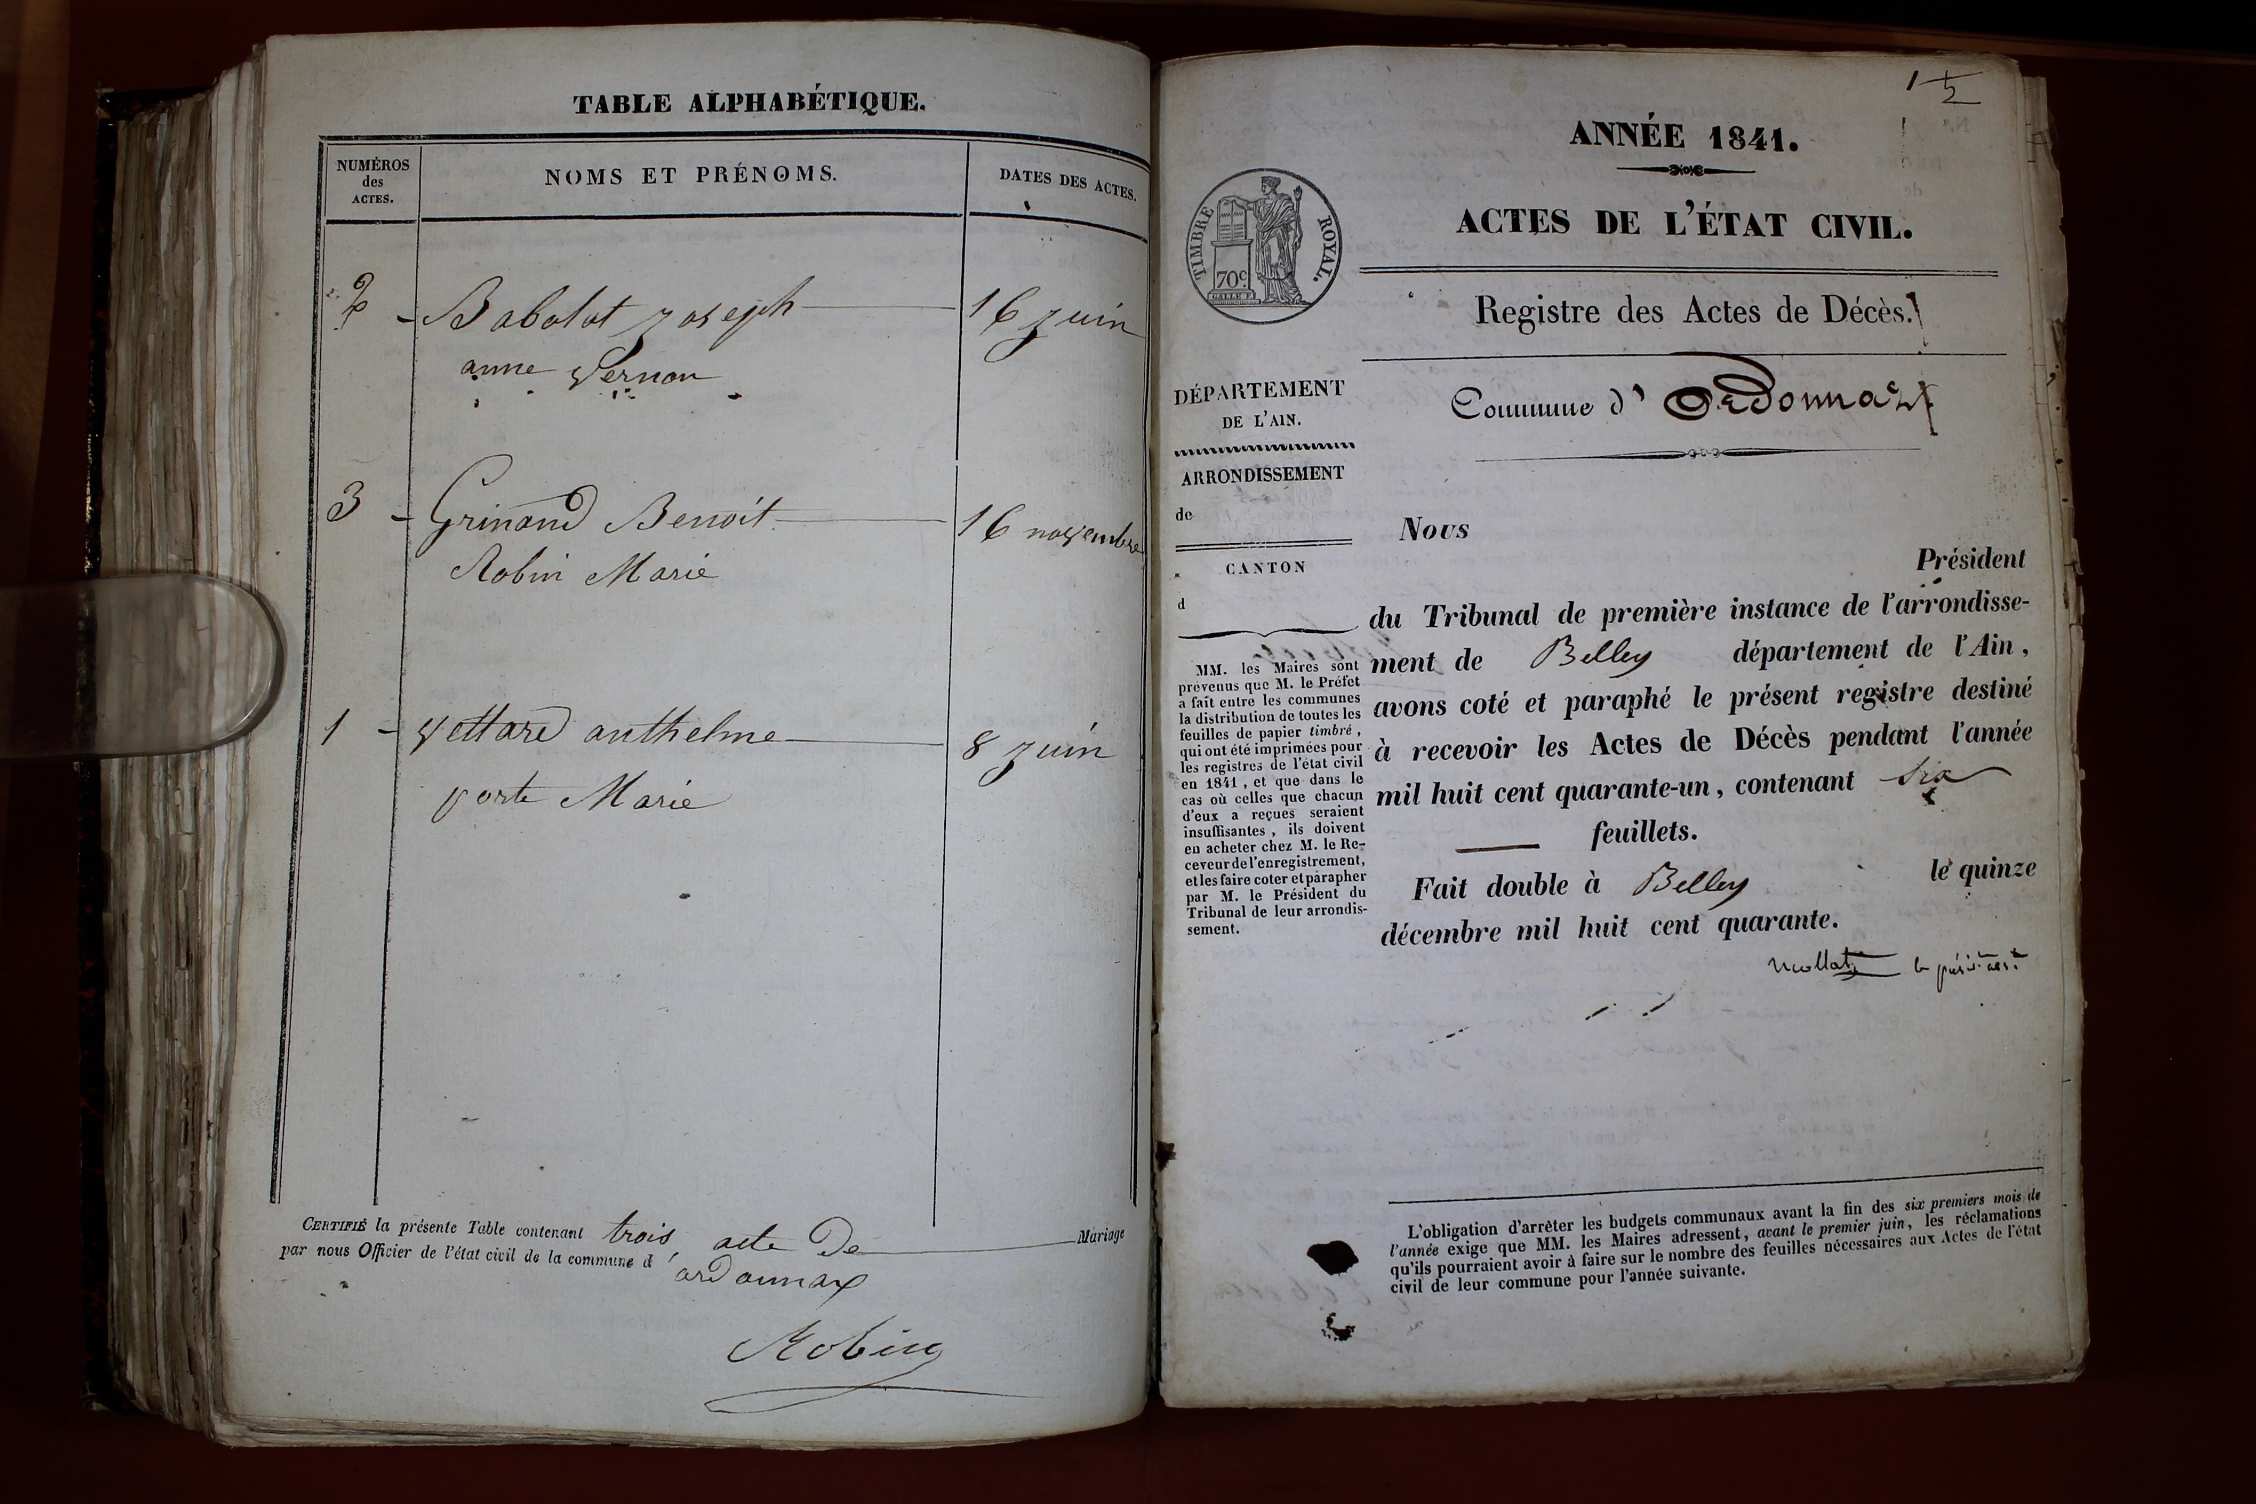 TABLE ALPHABÉTIQUE.
NUMÉROS
des
ACTES.
NOMS ET PRÉNOMS.
DATES DES ACTES.
2 - Babolat joseph 16 juin
anne Vernou
3 - Grinand Benoit 16 novembre
Robin Marie
1 - Vettard anthelme 8 juin
Marie
CERTIFIÉ la présente Table contenant trois acte De Mariage
par nous Officier de l'état civil de la commune d'ordonnax
Robin
1
ANNÉE 1841.
ACTES DE L'ÉTAT CIVIL.
TIMBRE ROYAL.
70c.
Registre des Actes de Décès.
Commune d' Ordonnaz
DÉPARTEMENT
DE L'AIN.
ARRONDISSEMENT
de
CANTON
d
MM. les Maires sont
prévenus que M. le Préfet
a fait entre les communes
la distribution de toutes les
feuilles de papier timbré,
qui ont été imprimées pour
les registres de l'état civil
en 1841, et que dans le
cas où celles que chacun
d'eux a reçues seraient
insuffisantes, ils doivent
en acheter chez M. le Re-
ceveur de l'enregistrement,
et les faire coter et parapher
par M. le Président du
Tribunal de leur arrondis-
sement.
Nous
Président
du Tribunal de première instance de l'arrondisse-
ment de Belley département de l'Ain,
avons coté et paraphé le présent registre destiné
à recevoir les Actes de Décès pendant l'année
mil huit cent quarante-un, contenant six
feuillets.
Fait double à Belley le quinze
décembre mil huit cent quarante.
L'obligation d'arrêter les budgets communaux avant la fin des six premiers mois de
l'année exige que MM. les Maires adressent, avant le premier juin, les réclamations
qu'ils pourraient avoir à faire sur le nombre des feuilles nécessaires aux Actes de l'état
civil de leur commune pour l'année suivante.